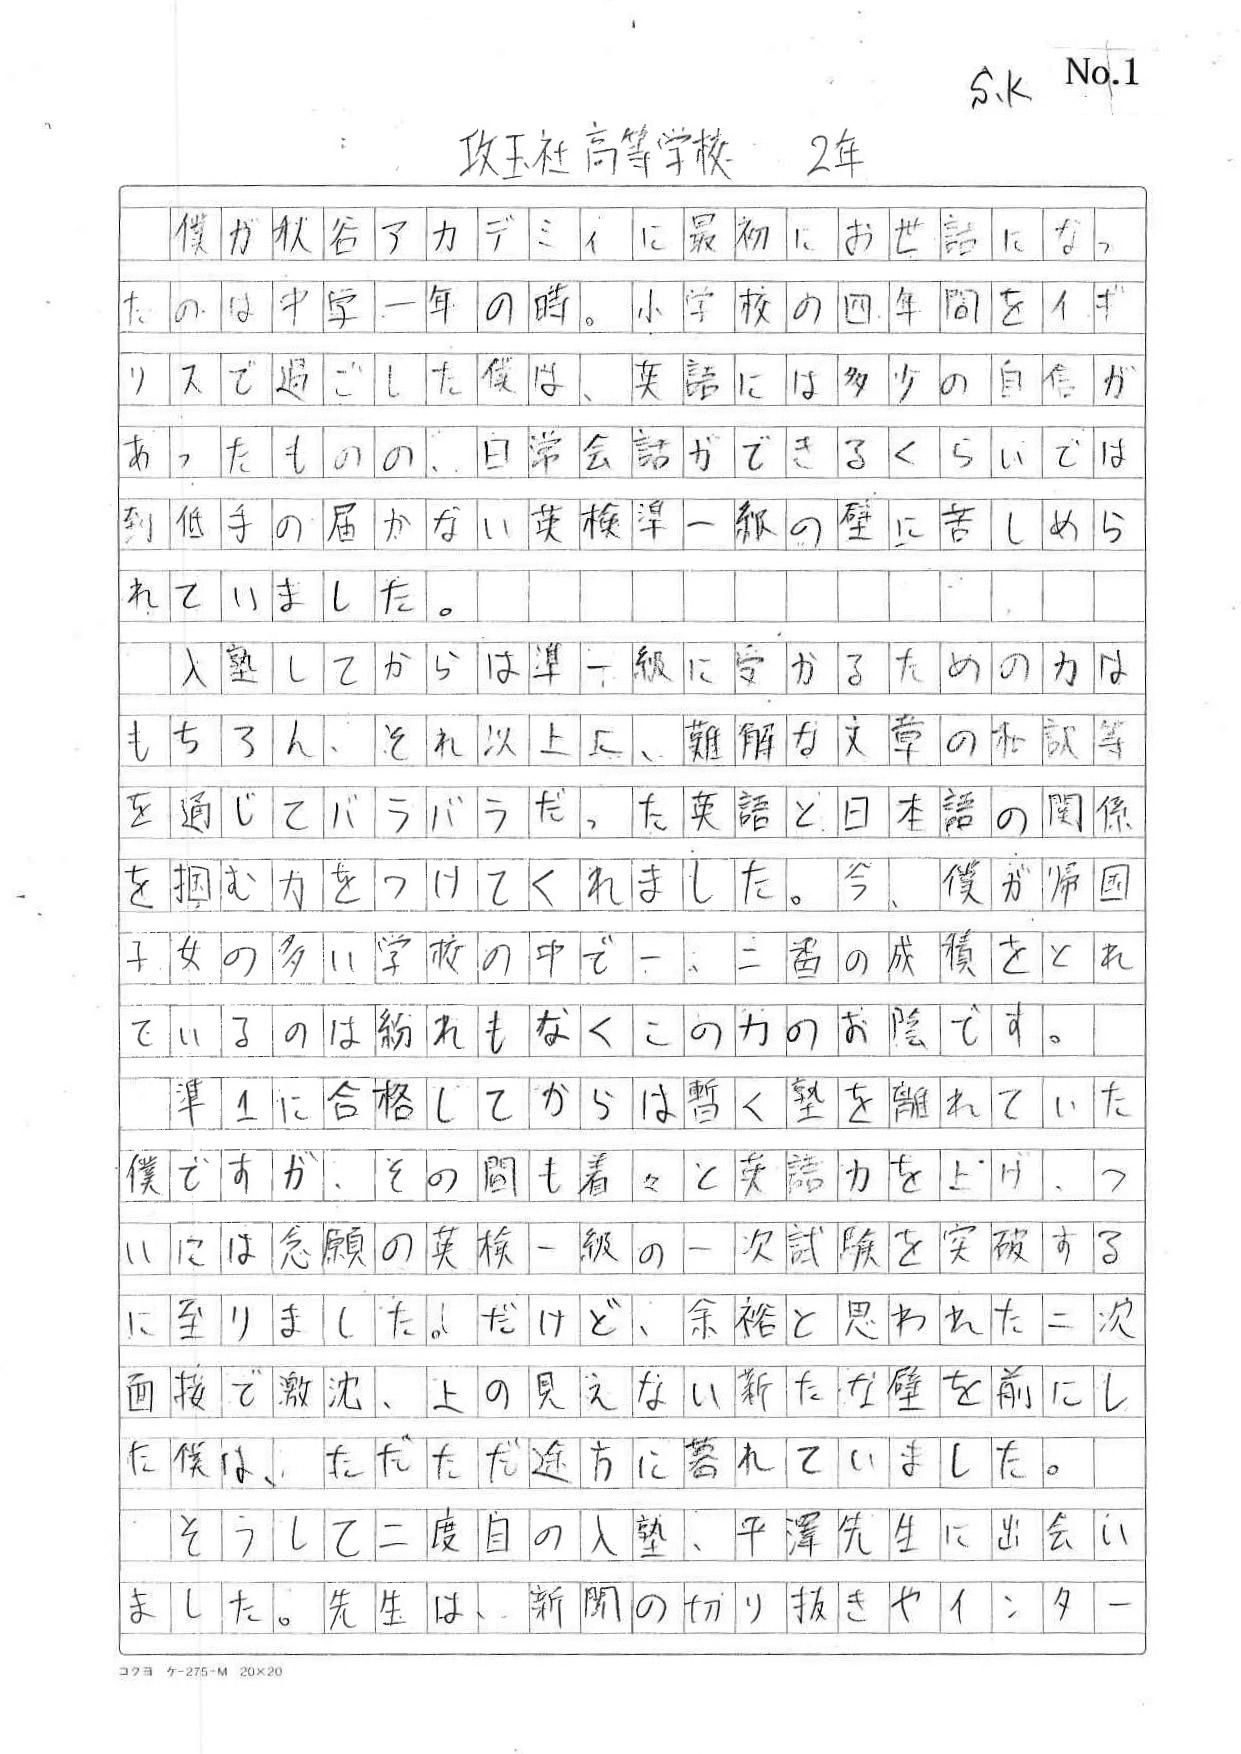 No.1
S.K
攻玉社高等学校 2年
僕が秋谷アカデミィに最初にお世話になっ
たのは中学一年の時。小学校の四年間をイギ
リスで過ごした僕は、英語には多少の自信が
あったものの、日常会話ができるくらいでは
到低手の届かない英検準一級の壁に苦しめら
れていました。
入塾してからは準一級に受かるための力は
もちろん、それ以上に、難解な文章の和訳等
を通じてバラバラだった英語と日本語の関係
を掴む力をつけてくれました。今、僕が帰国
子女の多い学校の中で一、二番の成積をとれ
ているのは紛れもなくこの力のお陰です。
準1に合格してからは暫く塾を離れていた
僕ですが、その間も着々と英語力を上げ、つ
いには念願の英検一級の一次試験を突破する
に至りました。だけど、余裕と思われた二次
面接で激沈、上の見えない新たな壁を前にし
た僕は、ただただ途方に暮れていました。
そうして二度目の入塾、平澤先生に出会い
ました。先生は、新聞の切り抜きやインター
コクヨ ケ-275-M 20×20